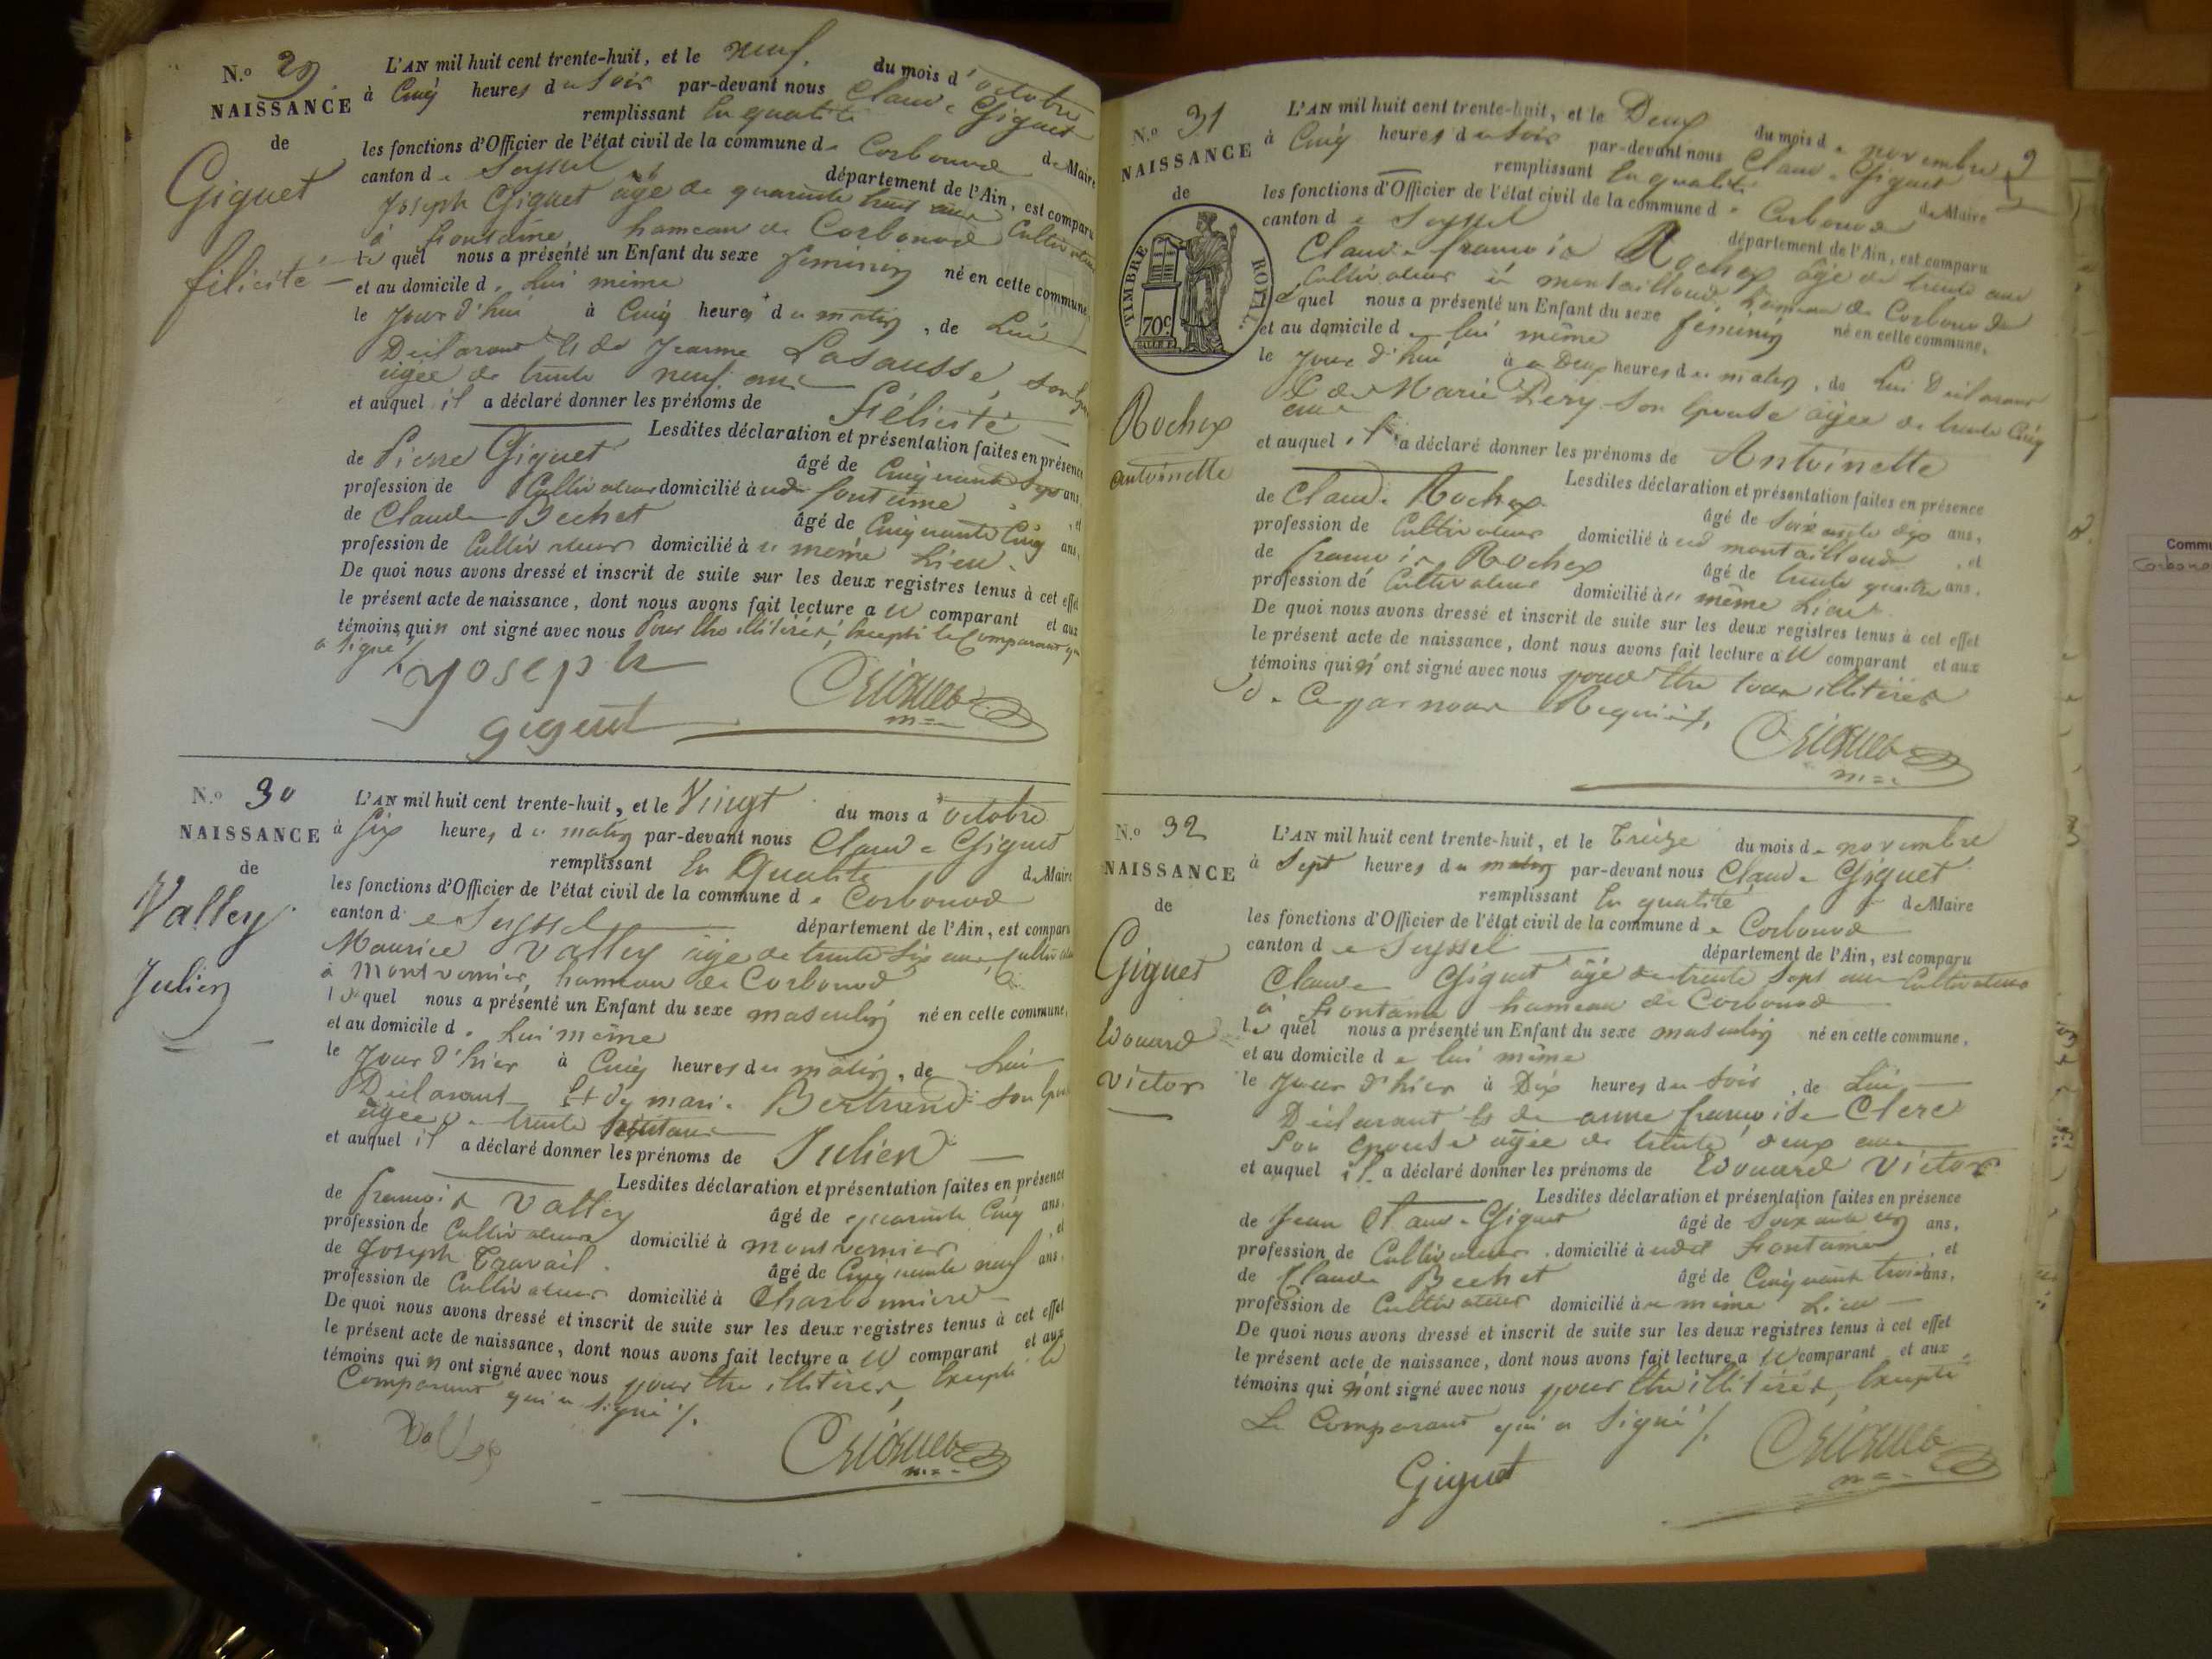 N.o 29
NAISSANCE
de
Giguet
félicité
L'AN mil huit cent trente-huit, et le neuf. du mois d'octobre
à Cinq heures du Soir par-devant nous Claude Giguet
remplissant En qualité de Maire
les fonctions d'Officier de l'état civil de la commune de Corbonod
canton de Seyssel département de l'Ain, est comparu
Joseph Giguet âgé de quarante huit ans Cultivateur
à hameau de Corbonod
le quel nous a présenté un Enfant du sexe féminin né en cette commune,
et au domicile de Lui même
le Jour d'hui à Cinq heures du matin, de Lui
Déclarant Et de Jeanne Lasausse, son
âgée de trente neuf ans
et auquel il a déclaré donner les prénoms de Félicité
Lesdites déclaration et présentation faites en présence
de Pierre Giguet âgé de Cinquante ans,
profession de Cultivateur domicilié à
de Claude Bechet âgé de Cinquante Cinq ans,
profession de Cultivateur domicilié à même Lieu.
De quoi nous avons dressé et inscrit de suite sur les deux registres tenus à cet effet
le présent acte de naissance, dont nous avons fait lecture a comparant et aux
témoins qui n ont signé avec nous Pour être illitérés, Excepté le Comparant qui
a signé
Joseph
gigeut
N.o 30
NAISSANCE
de
Valley
Julien
L'AN mil huit cent trente-huit, et le Vingt du mois d'octobre
à Six heures du matin par-devant nous Claude Giguet
remplissant En Qualité de Maire
les fonctions d'Officier de l'état civil de la commune de Corbonod
canton de Seyssel département de l'Ain, est comparu
Maurice Valley âgé de trente Six ans, Cultivateur
à Montvernier, hameau de Corbonod
le quel nous a présenté un Enfant du sexe masculin né en cette commune,
et au domicile de Lui même
le Jour d'hier à Cinq heures du matin, de Lui
Déclarant Et de marie Bertrand son
âgée de trente
et auquel il a déclaré donner les prénoms de Julien
Lesdites déclaration et présentation faites en présence
de françois Valley âgé de quarante Cinq ans,
profession de Cultivateur domicilié à montvernier, et
de Joseph Travail. âgé de Cinquante neuf ans,
profession de Cultivateur domicilié à Charbonniere
De quoi nous avons dressé et inscrit de suite sur les deux registres tenus à cet effet
le présent acte de naissance, dont nous avons fait lecture a comparant et aux
témoins qui n ont signé avec nous pour être illitérés, Excepté le
Comparant qui a signé
N.o 31
NAISSANCE
de
TIMBRE ROYAL.
70c
Rochex
antoinette
L'AN mil huit cent trente-huit, et le Deux du mois de novembre
à Cinq heures du soir par-devant nous Claude Giguet
remplissant En qualité de Maire
les fonctions d'Officier de l'état civil de la commune de Corbonod
canton de Seyssel département de l'Ain, est comparu
Claude françois Rochex âgé de trente ans
Cultivateur à montailloud hameau de Corbonod
quel nous a présenté un Enfant du sexe féminin né en cette commune,
et au domicile de lui même
le Jour d'hui à Deux heures du matin, de Lui Déclarant
Et de Marie Pery Son Epouse âgée de trente Cinq
ans
et auquel il a déclaré donner les prénoms de Antoinette
Lesdites déclaration et présentation faites en présence
de Claude Rochex. âgé de Soixante dix ans,
profession de Cultivateur domicilié à montailloud, et
de françois Rochex âgé de trente quatre ans,
profession de Cultivateur domicilié à même Lieu
De quoi nous avons dressé et inscrit de suite sur les deux registres tenus à cet effet
le présent acte de naissance, dont nous avons fait lecture a comparant et aux
témoins qui n' ont signé avec nous pour être tous illitérés
de Ce par nous Requis
N.o 32
NAISSANCE
de
Giguet
Edouard
victor
L'AN mil huit cent trente-huit, et le Treize du mois de novembre
à Sept heures du matin par-devant nous Claude Giguet
remplissant En qualité de Maire
les fonctions d'Officier de l'état civil de la commune de Corbonod
canton de Seyssel département de l'Ain, est comparu
Claude Giguet âgé de trente Sept ans Cultivateur
à hameau de Corbonod
le quel nous a présenté un Enfant du sexe masculin né en cette commune,
et au domicile de lui même
le Jour d'hier à Dix heures du Soir, de Lui
Déclarant Et de anne françoise Clerc
Son Epouse âgée de trente deux ans
et auquel il a déclaré donner les prénoms de Edouard Victor
Lesdites déclaration et présentation faites en présence
de Jean Claude Giguet âgé de ans,
profession de Cultivateur domicilié à et
de Claude Bechet âgé de Cinquante trois ans,
profession de Cultivateur domicilié à même Lieu
De quoi nous avons dressé et inscrit de suite sur les deux registres tenus à cet effet
le présent acte de naissance, dont nous avons fait lecture a comparant et aux
témoins qui n'ont signé avec nous pour être illitérés, Excepté
Le Comparant qui a signé
Giguet